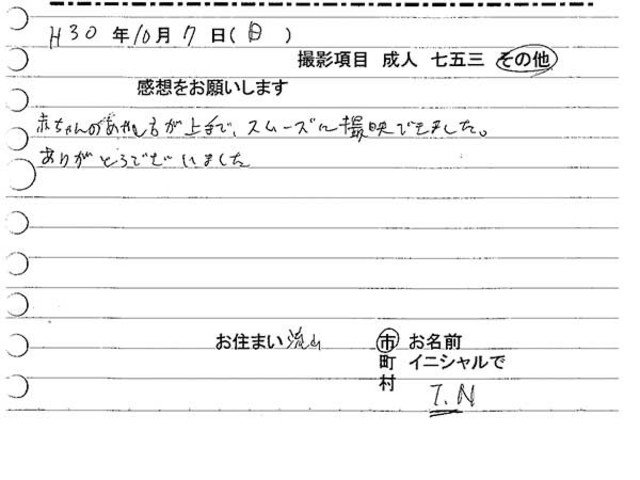 H30年10月7日(日)
撮影項目 成人 七五三 その他
感想をお願いします
赤ちゃんのあやしもが上手で、スムーズに撮映できました。
ありがとうございました
お住まい 流山 市 お名前
町 イニシャルで
村 T.N